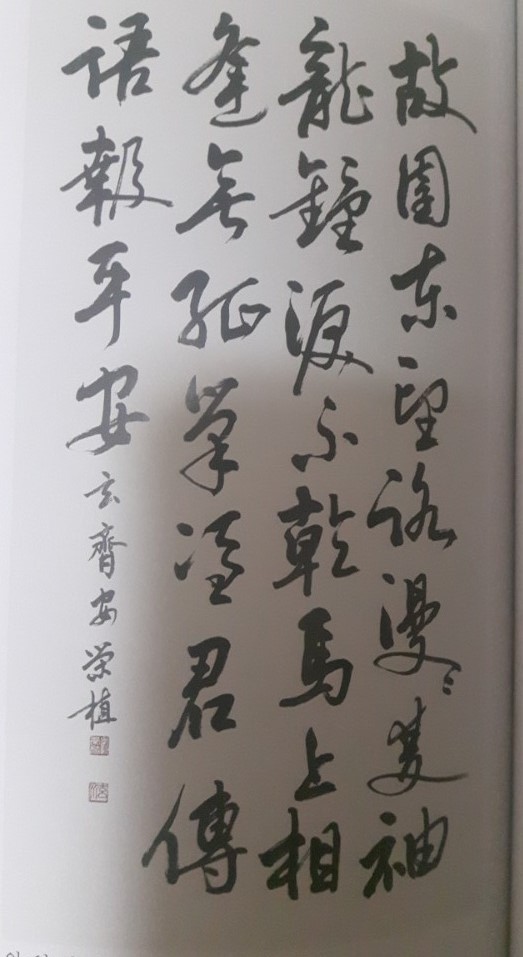 故園東望路漫々雙袖
龍鐘淚不乾馬上相
逢無紙筆憑君傳
語報平安玄齋安榮植